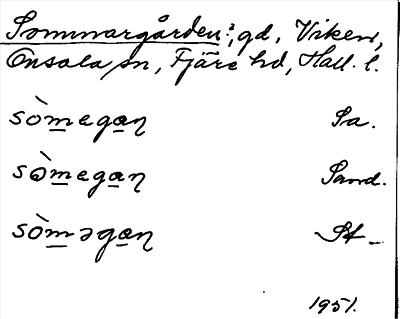 Sommargården:, gd, Viken,
Onsala sn, Fjäre hd, Hall. l.
sòmegaɳ Sa.
sòmegaɳ Sand.
sòməgaɳ St.
1951.